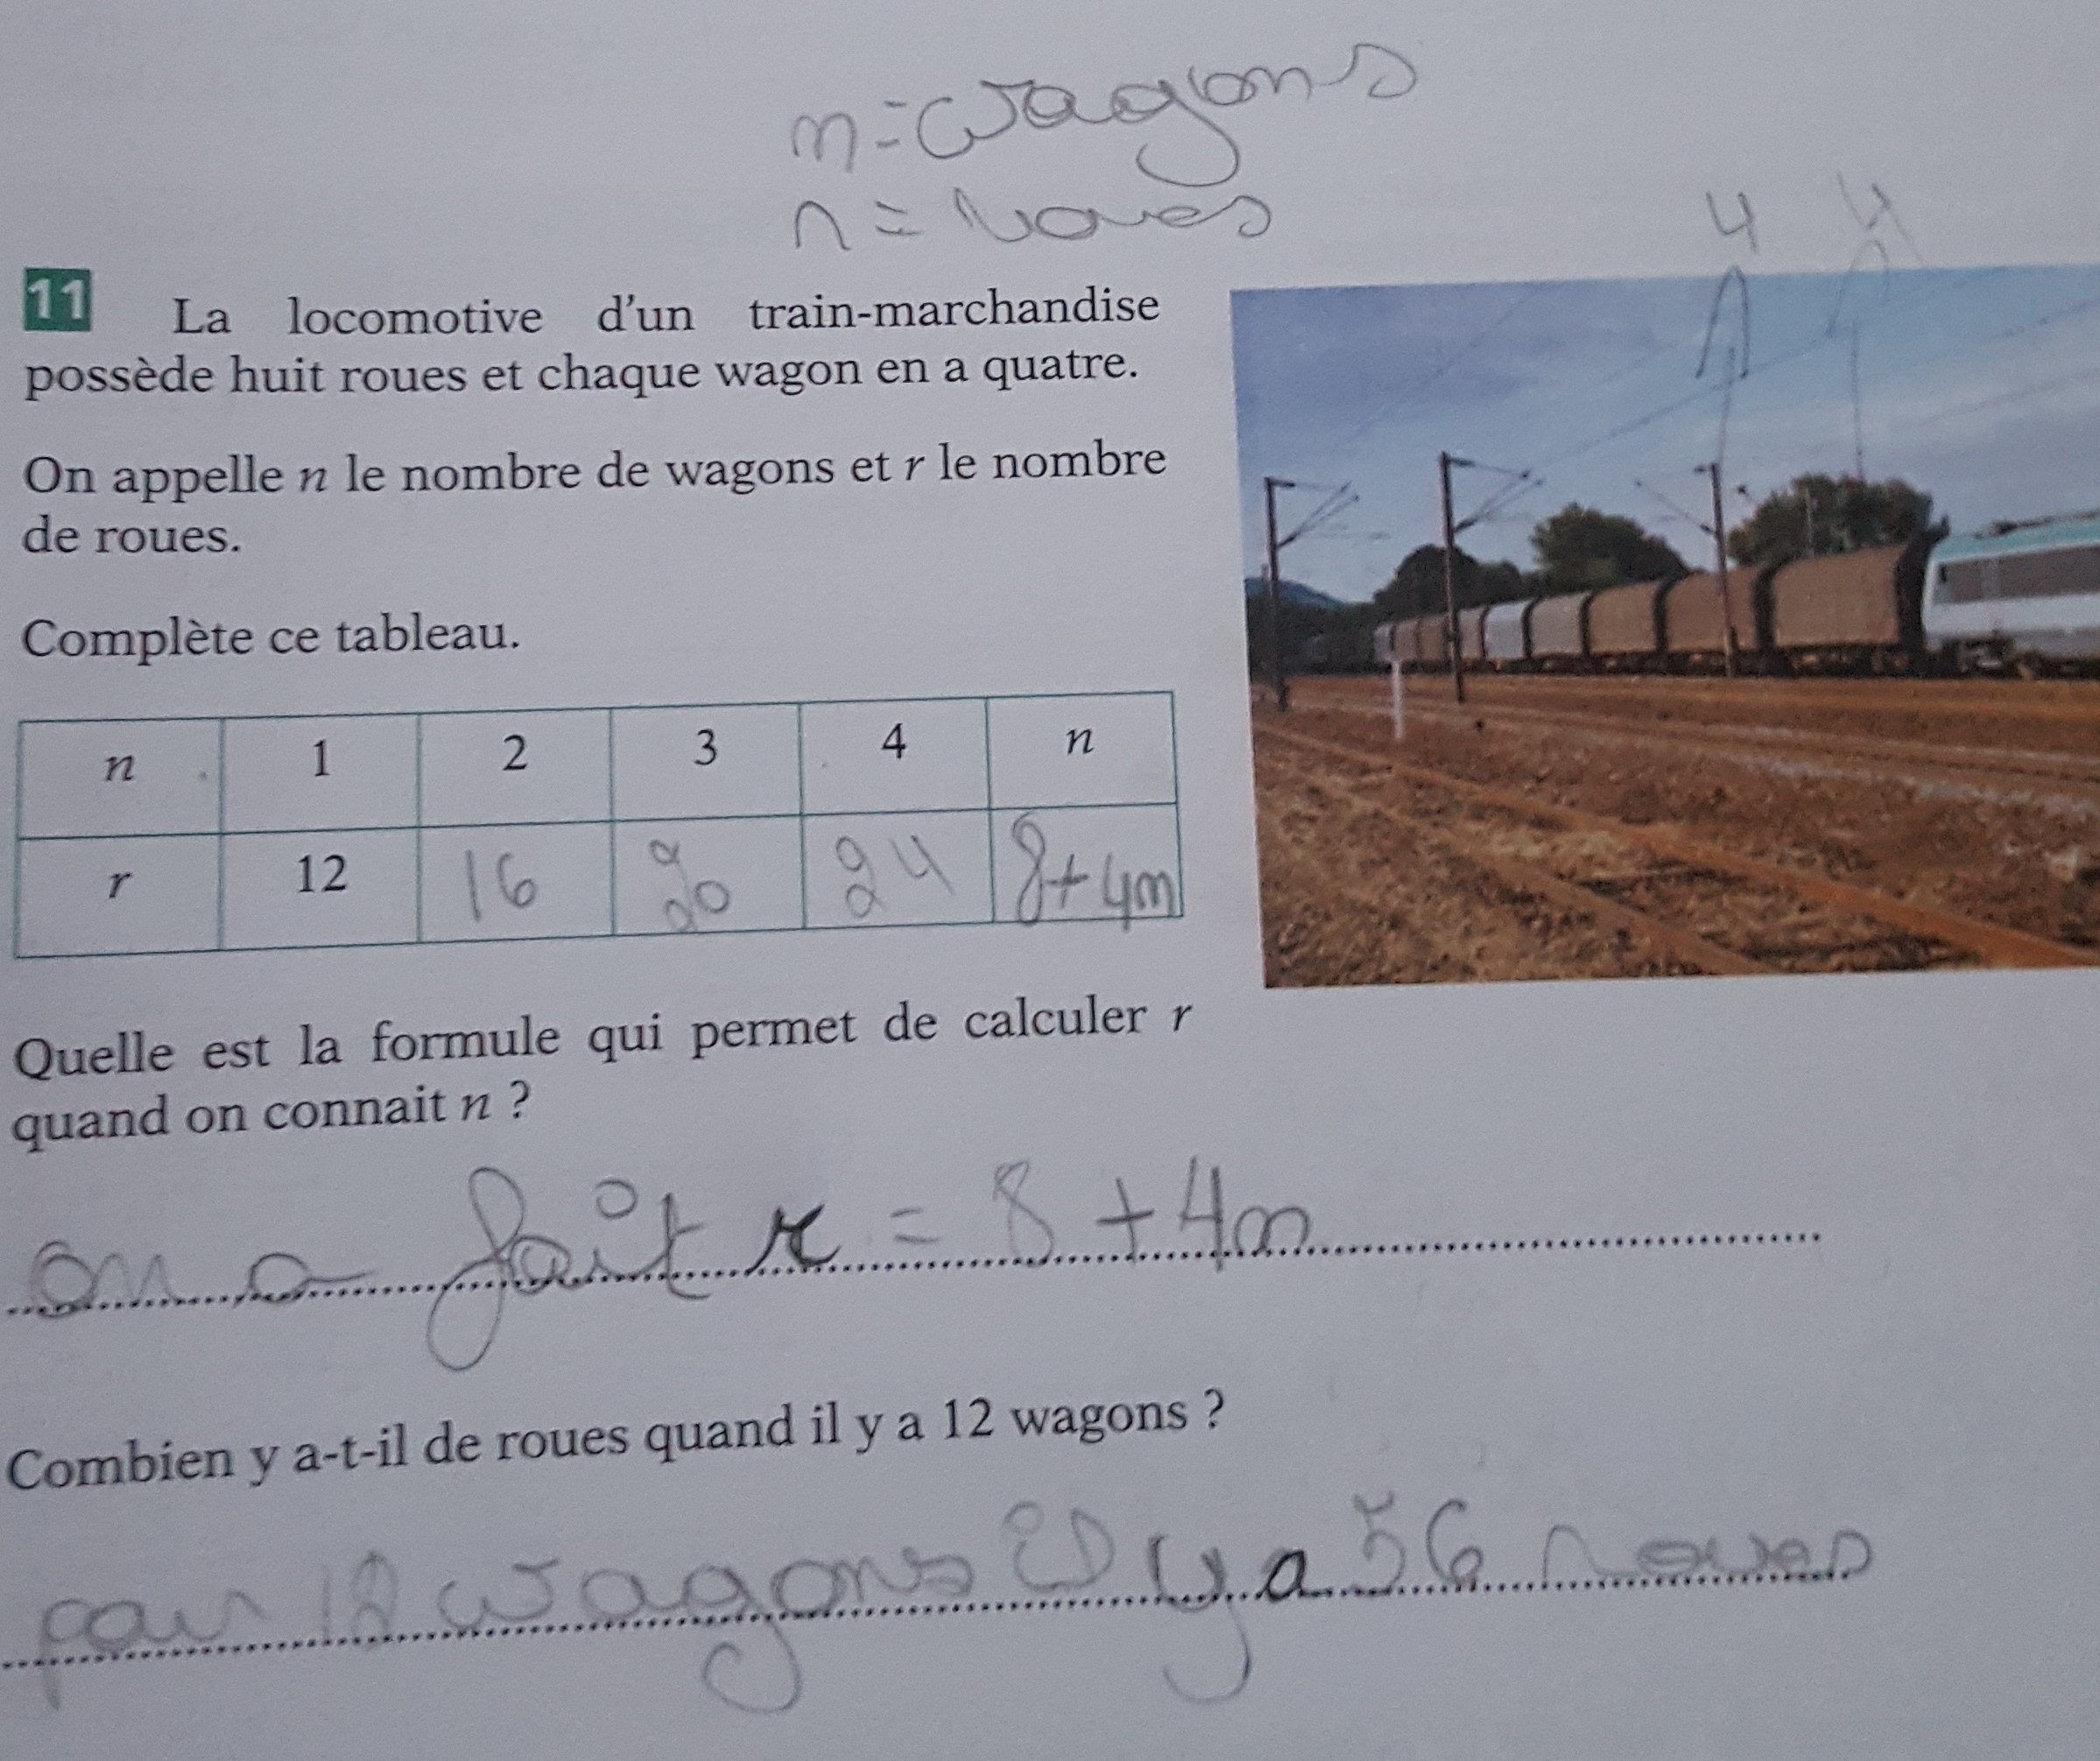 n = wagons
r = roues
4 4
11 La locomotive d'un train-marchandise
possède huit roues et chaque wagon en a quatre.
On appelle n le nombre de wagons et r le nombre
de roues.
Complète ce tableau.
n 1 2 3 4 n
r 12 16 20 24 8+4n
Quelle est la formule qui permet de calculer r
quand on connait n ?
on a fait r = 8 + 4n
Combien y a-t-il de roues quand il y a 12 wagons ?
pour 12 wagons il y a 56 roues